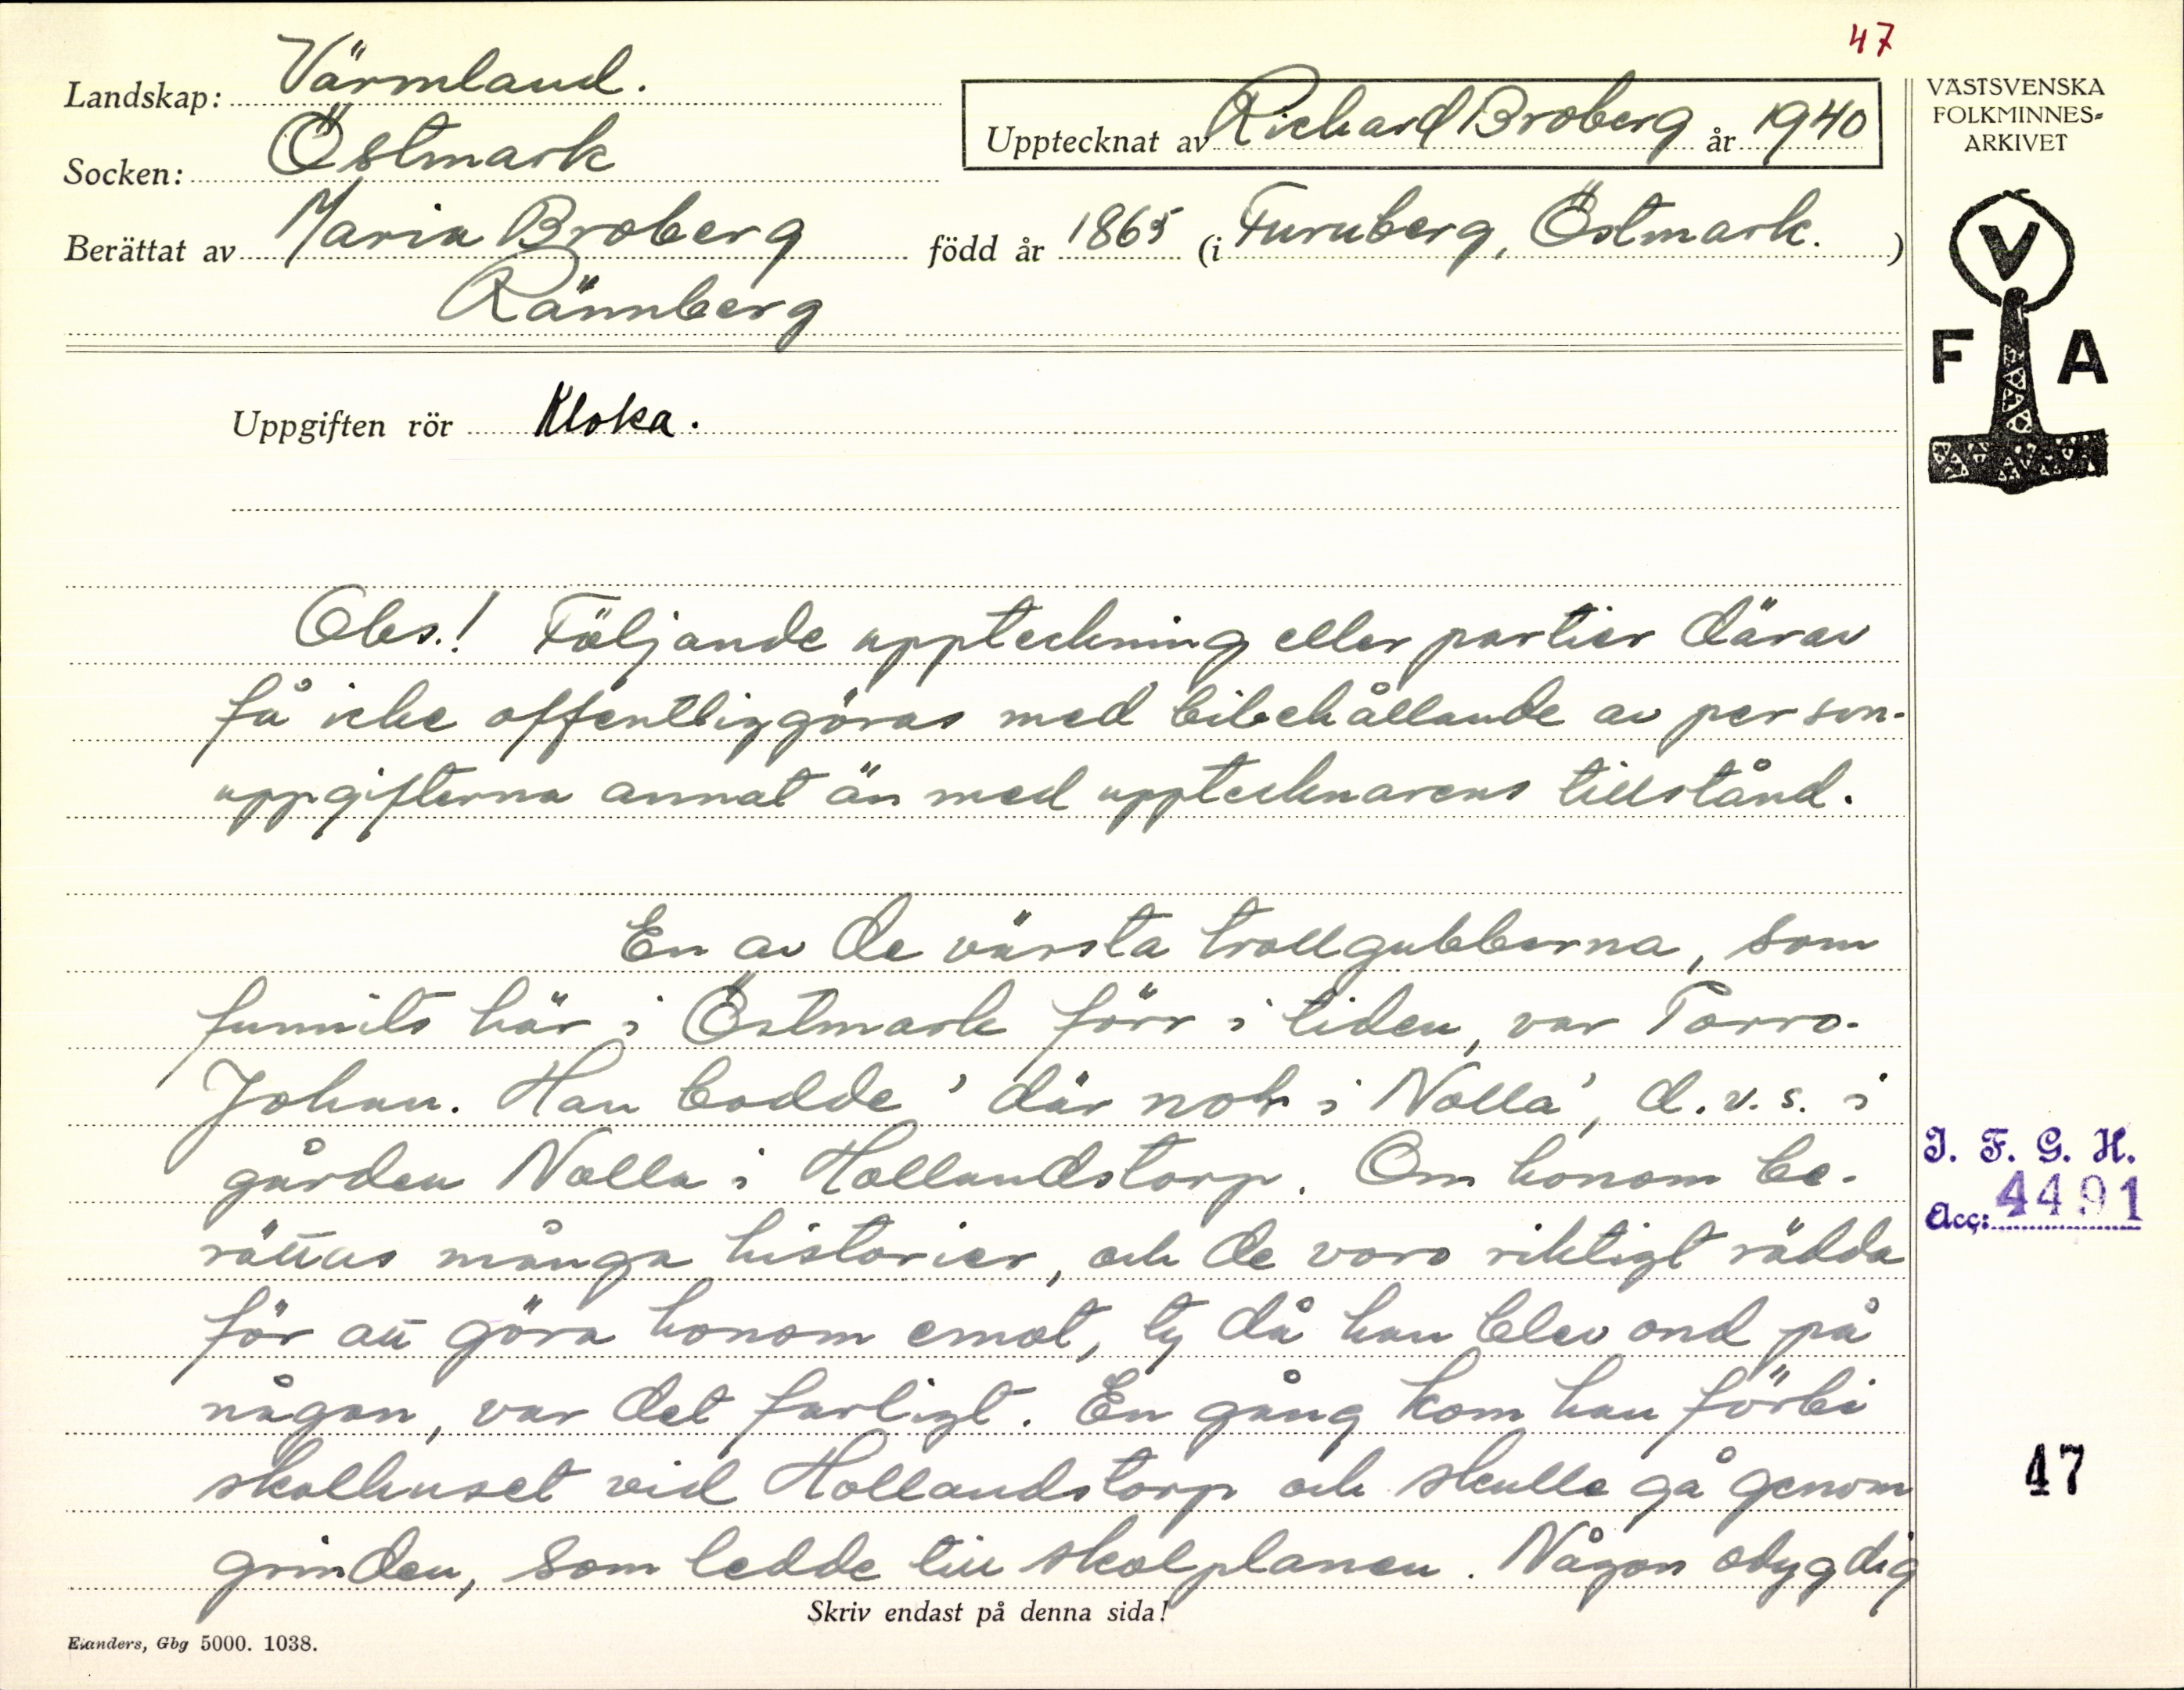 47
Landskap: Värmland.
Socken: Östmark
Upptecknat av Richard Broberg år 1940
Berättat av Maria Broberg född år 1865 (i Furuberg, Östmark. )
Rännberg
VÄSTSVENSKA
FOLKMINNES-
ARKIVET
V
F A
Uppgiften rör Kloka.
Obs.! Följande uppteckning eller partier därav
få icke offentliggöras med bibehållande av person-
uppgifterna annat än med upptecknarens tillstånd.
En av de värsta trollgubbarna, som
funnits här i Östmark förr i tiden, var Porro-
Johan. Han bodde 'där nol i Nolla', d.v.s. i
gården Nolla i Hollandstorp. Om honom be-
rättas många historier, och de voro riktigt rädda
för att göra honom emot, ty då han blev ond på
någon, var det farligt. En gång kom han förbi
skolhuset vid Hollandstorp och skulle gå genom
grinden, som ledde till skolplanen. Någon odygdig
I. F. G. H.
Acc: 4491
47
Skriv endast på denna sida!
Elanders, Gbg 5000. 1038.